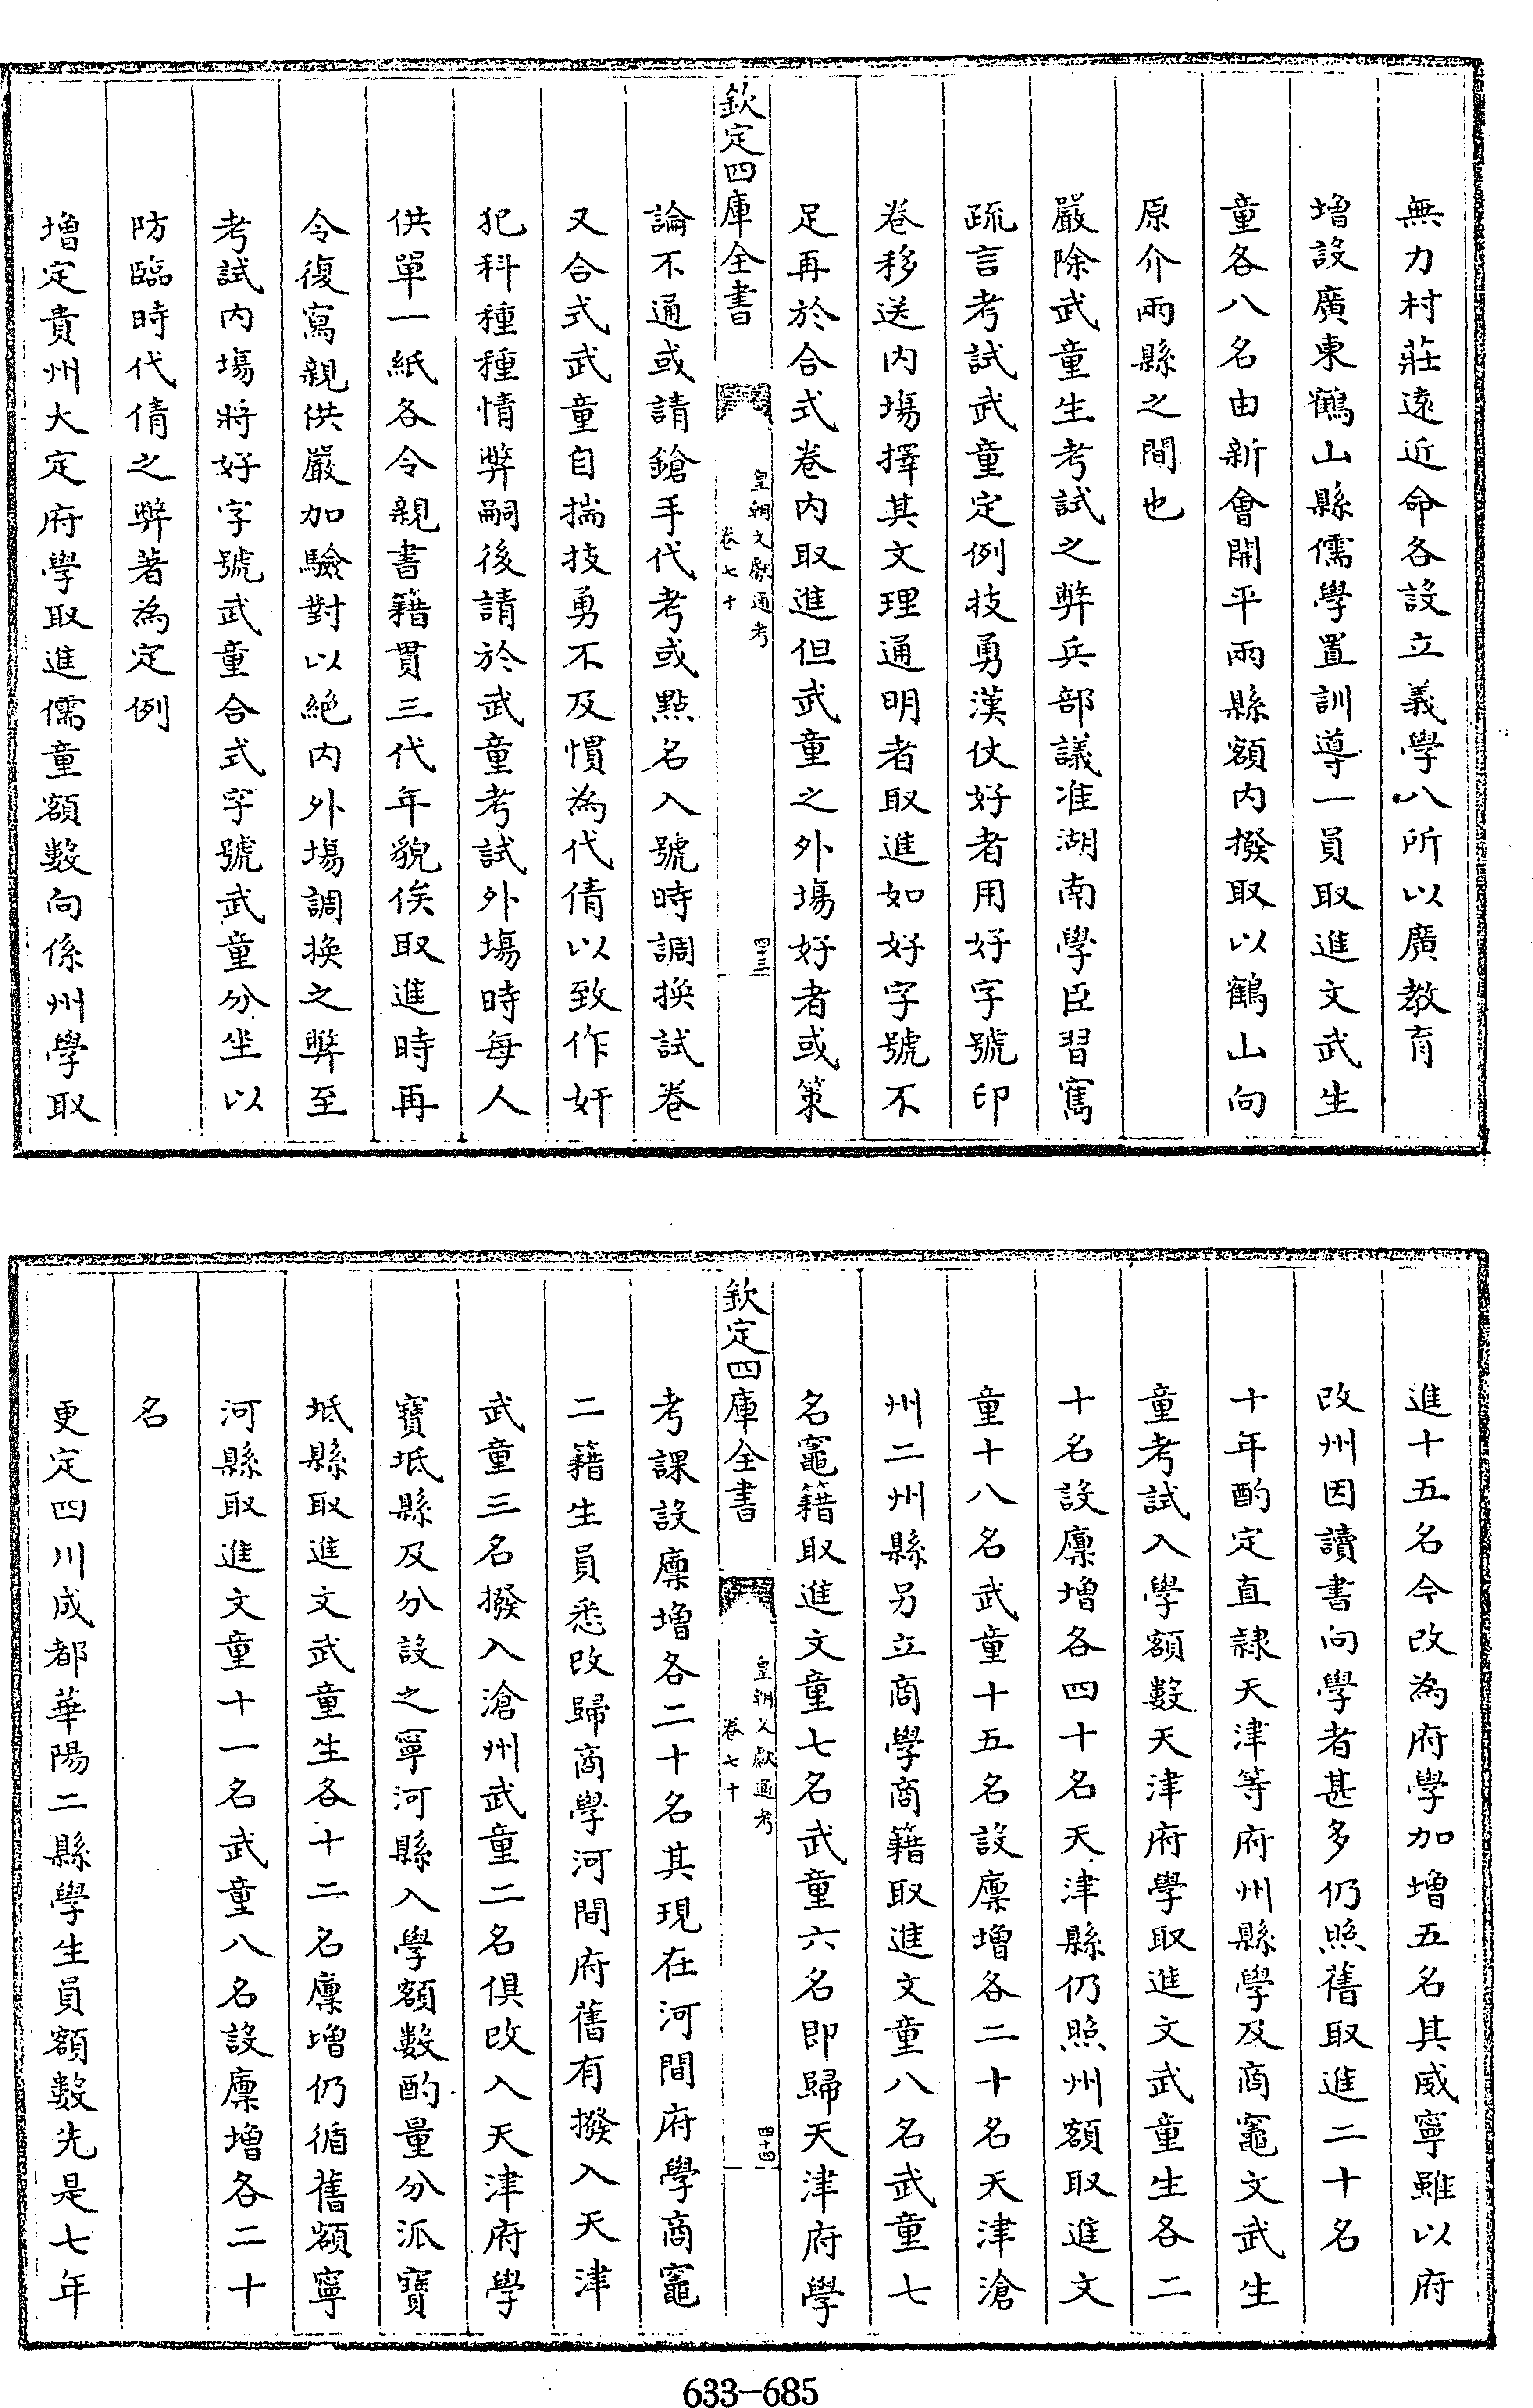 無力村莊遠近命各設立義學八所以廣教育
增設廣東鶴山縣儒學置訓導一員取進文武生
童各八名由新會開平兩縣額内撥取以鶴山向
原介兩縣之間也
嚴除武童生考試之弊兵部議准湖南學臣習寯
疏言考試武童定例技勇漢仗好者用好字號印
卷移送内塲擇其文理通明者取進如好字號不
足再於合式卷内取進但武童之外塲好者或策
欽定四庫全書
皇朝文獻通考
卷七十
四十三
論不通或請鎗手代考或點名入號時調換試卷
又合式武童自揣技勇不及慣為代倩以致作奸
犯科種種情弊嗣後請於武童考試外塲時每人
供單一紙各令親書籍貫三代年貌俟取進時再
令復寫親供嚴加驗對以絶内外塲調換之弊至
考試内塲將好字號武童合式字號武童分坐以
防臨時代倩之弊著為定例
增定貴州大定府學取進儒童額數向係州學取
進十五名今改為府學加增五名其威寧雖以府
改州因讀書向學者甚多仍照舊取進二十名
十年酌定直隸天津等府州縣學及商竈文武生
童考試入學額數天津府學取進文武童生各二
十名設廩增各四十名天津縣仍照州額取進文
童十八名武童十五名設廩增各二十名天津滄
州二州縣另立商學商籍取進文童八名武童七
名竈籍取進文童七名武童六名即歸天津府學
欽定四庫全書
皇朝文獻通考
卷七十
四十四
考課設廩增各二十名其現在河間府學商竈
二籍生員悉改歸商學河間府舊有撥入天津
武童三名撥入滄州武童二名俱改入天津府學
寶坻縣及分設之寧河縣入學額數酌量分派寶
坻縣取進文武童生各十二名廩增仍循舊額寧
河縣取進文童十一名武童八名設廩增各二十
名
更定四川成都華陽二縣學生員額數先是七年
633-685